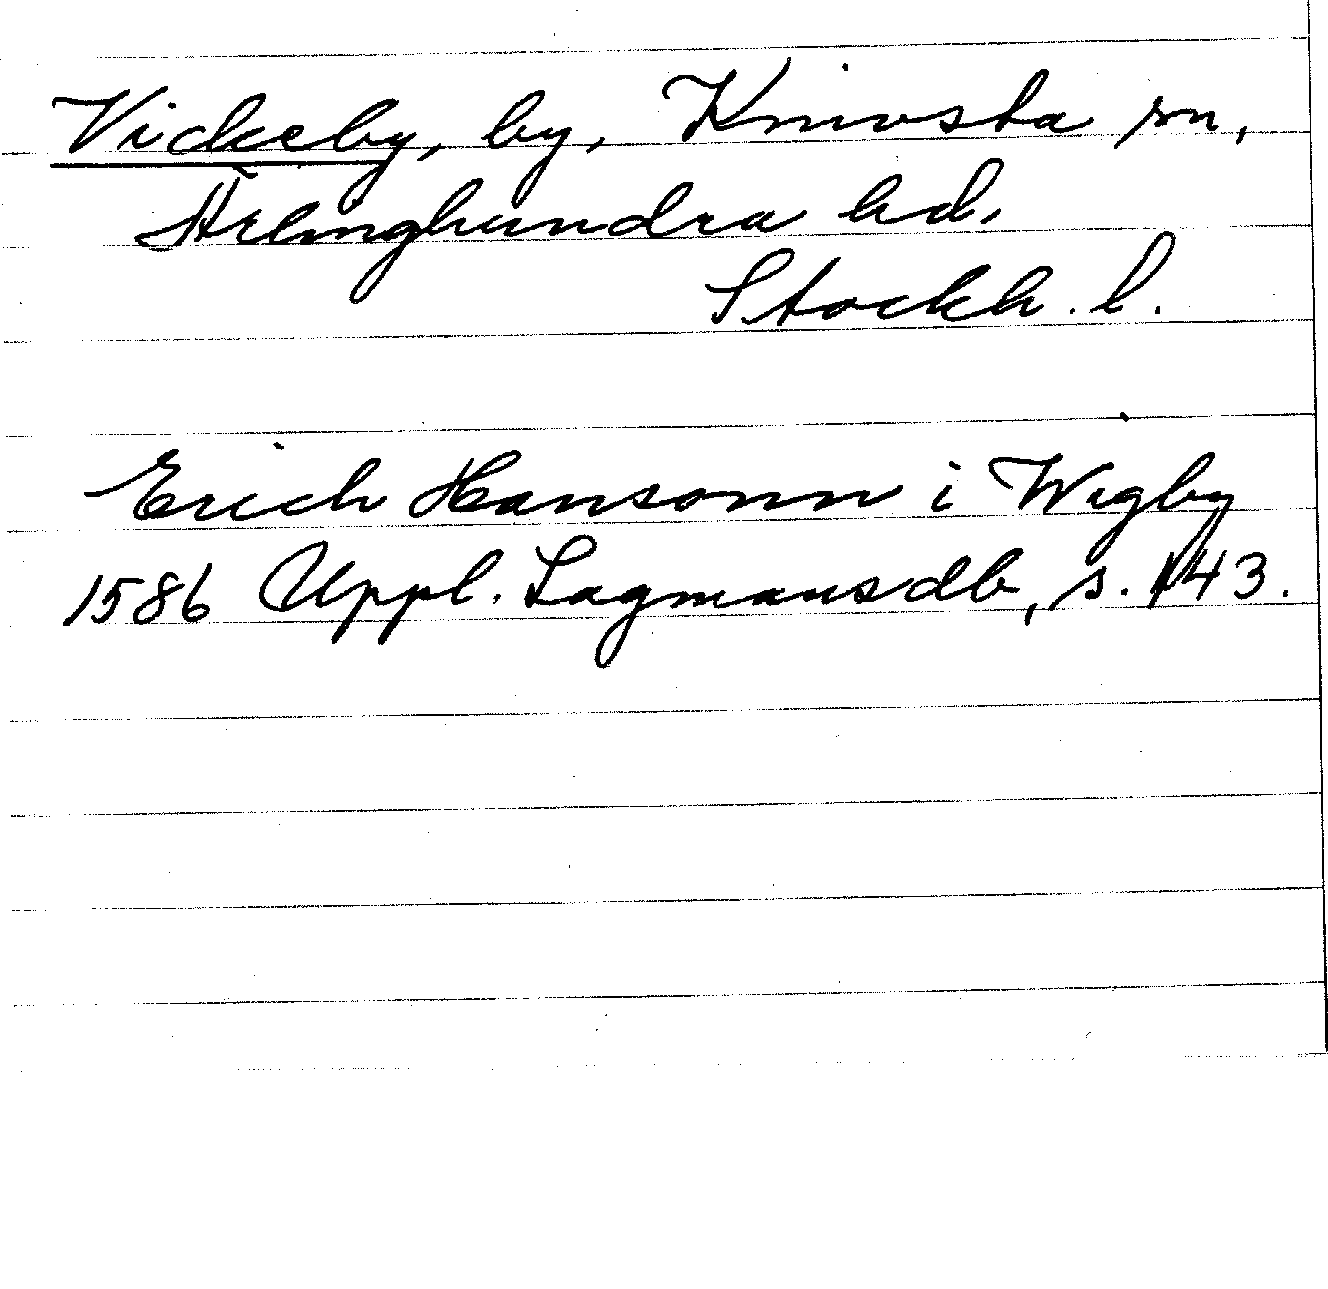 Vickeby, by, Knivsta sn,
Ärlinghundra hd.
Stockh. l.
Erich Hansonn i Wigby
1586 Uppl. Lagmansdb, s. 143.